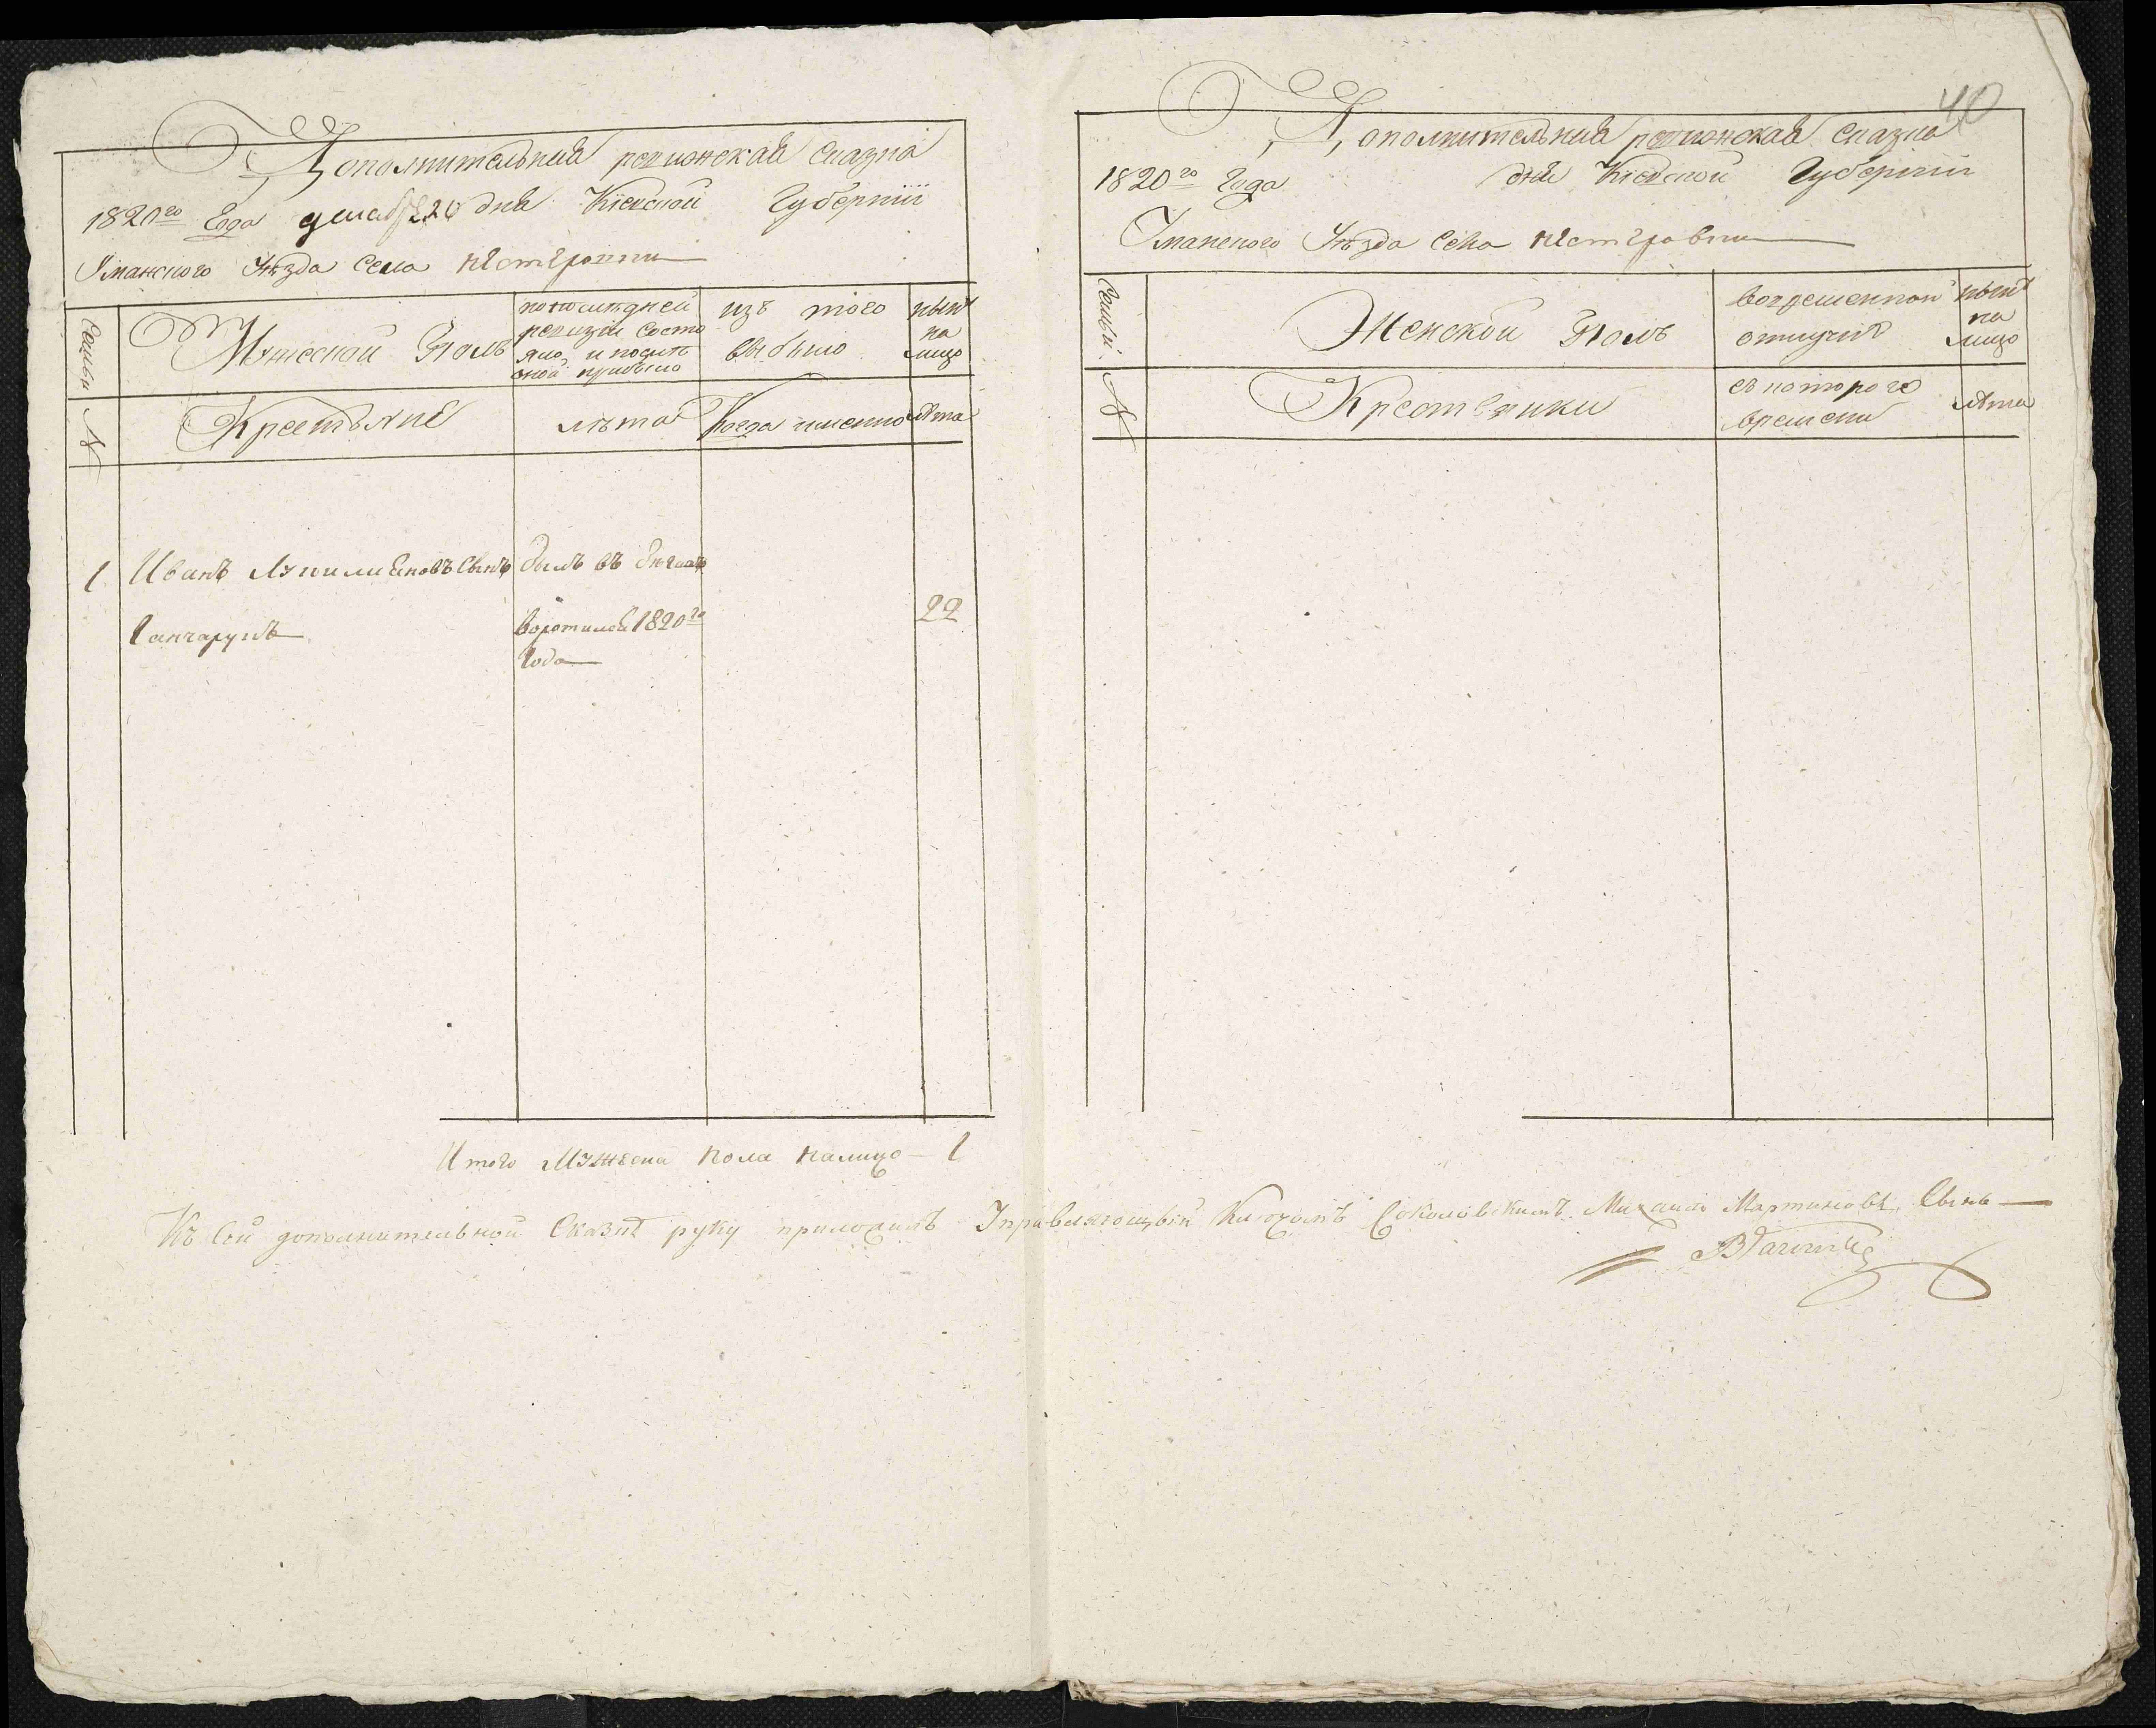 Дополнительная ревижская сказка
1820го Года декабр 20 дня Кіевской Губерніи
Уманского Уѣзда Села Нестеровки
Семьи
Мужеской Полъ
по послѣдней
ревизіи состо
яло, и послѣ
оной прибыло
изъ того
выбыло
ныне
на
лицо
№
Крестьяне
лѣта
Когда именно
лѣта
1
Иванъ Лукимяновъ Сынъ
былъ въ бегахъ
Ганчарукъ
воротился 1820го
22
Года
Итого Мужеска пола налицо 1
40
Дополнительная ревижская Сказка
1820го Года дня Кіевской Губерніи
Уманского Уѣзда Села Нестеровки
Семьи
Женской Полъ
Во временной
отлучкѣ
ныне
на
лицо
№
Крестьянки
съ которого
времени
лѣта
Къ Сей дополнительной Сказке руку приложилъ Управляющый Ключомъ Соколовскимъ Михаилъ Мартиновъ Сынъ